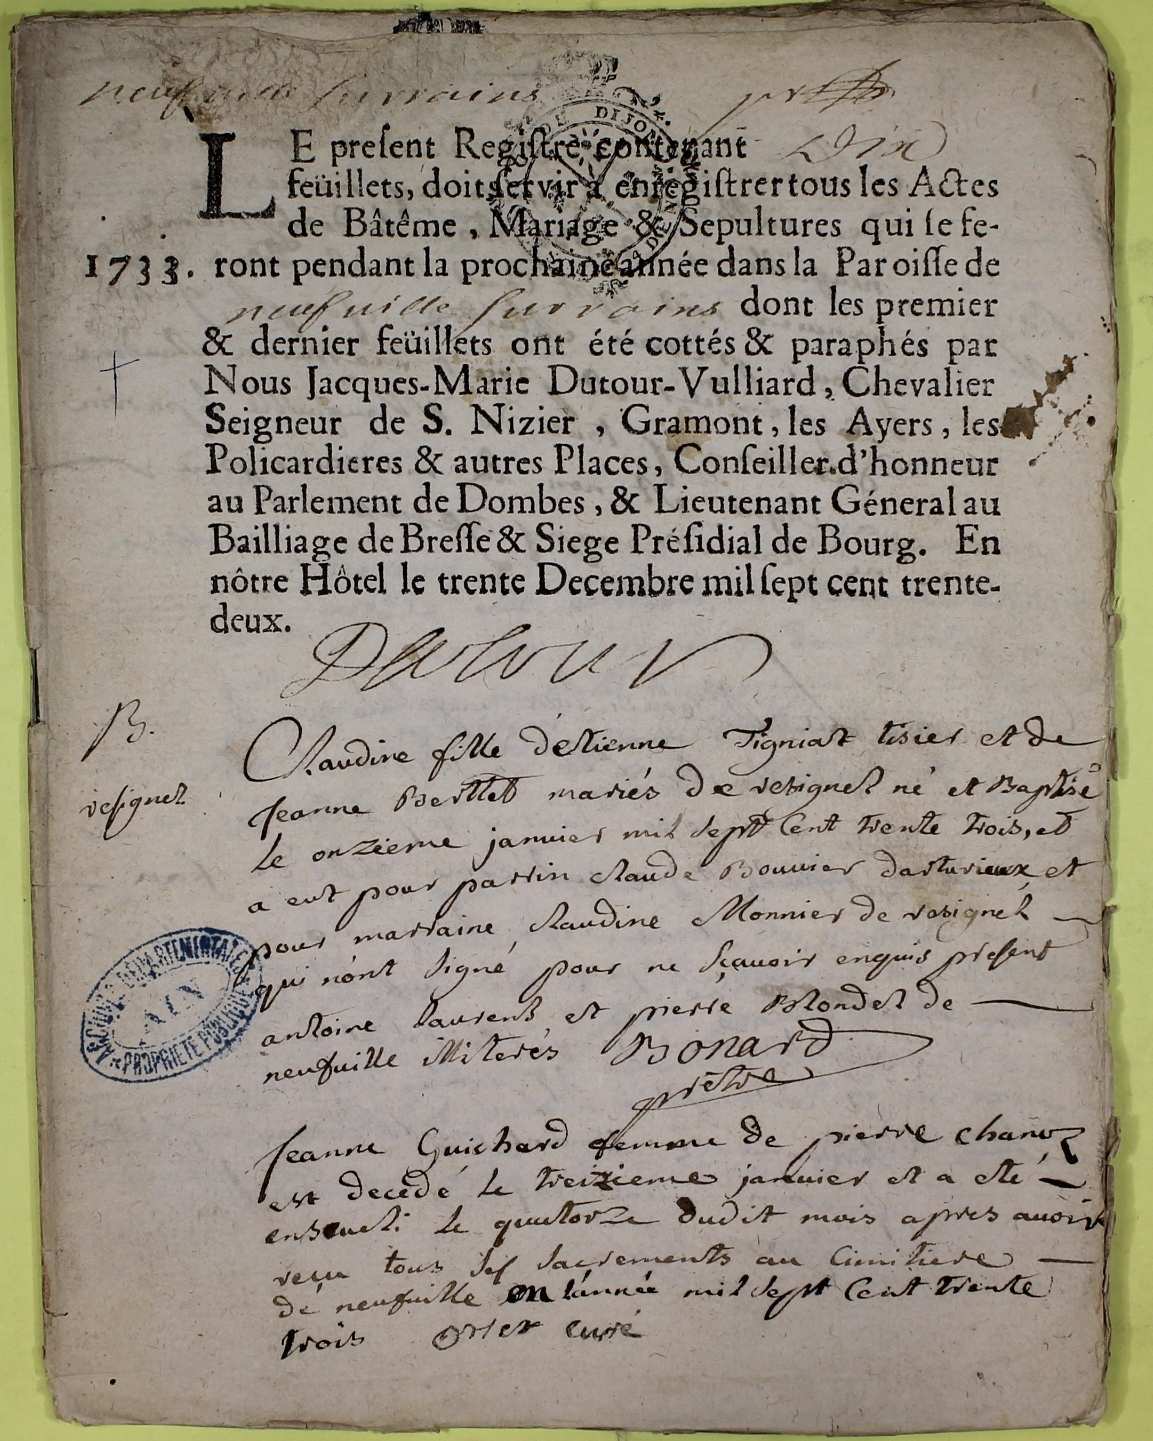 neufville surrains
DE DIJON
LE preſent Regiſtre contenant Dix
feüillets, doit ſervir à enregiſtrer tous les Actes
de Bâtême, Mariage & Sepultures qui ſe fe-
1733. ront pendant la prochaine année dans la Paroiſſe de
neufuille surrains dont les premier
& dernier feüillets ont été cottés & paraphés par
Nous Jacques-Marie Dutour-Vulliard, Chevalier
Seigneur de S. Nizier, Gramont, les Ayers, les
Policardieres & autres Places, Conſeiller d'honneur
au Parlement de Dombes, & Lieutenant Géneral au
Bailliage de Breſſe & Siege Préſidial de Bourg. En
nôtre Hôtel le trente Decembre mil ſept cent trente-
deux.
Dutour
B.
resignel
Claudine fille d'étienne Tigniat tisier et de
Jeanne Berttet mariés de resignel né et Baptisé
le onzieme janvier mil sept Cent trente trois, et
a eut pour parrin claude Bouvier darturieux et
pour marraine Claudine Monnier de resignel
qui n'ont signé pour ne sçavoir enquis present
antoine laurens et pierre Blondel de
neufuille illiterés Bonard
prêtre
ARCHIVES DEPARTEMENTALES
AIN
PROPRIETE PUBLIQUE
Jeanne Guichard femme de pierre
est decedé le treizieme janvier et a eté
enseveli le quatorze dudit mois apres auoir
reçu tous ses sacrements au Cimitiere
de neufuille en l'année mil sept Cent trente
trois orset curé